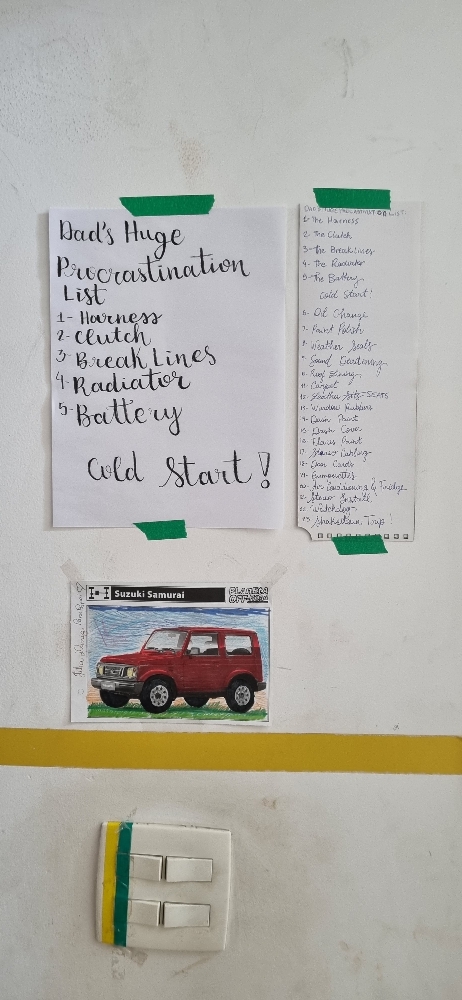 Dad's Huge
Procrastination
List
1- Harness
2- Clutch
3- Break Lines
4- Radiator
5- Battery
Cold Start!
1- The Harness
2- The Clutch
3- The Break Lines
4- The Radiator
5- The Battery
Cold Start!
6- Oil Change
7- Paint Polish
8- Weather Seals
9- Sound Deadening
10- Roof Lining
11- Carpet
12- Leather Sets - SEATS
13- Window Rubbers
14- Dash Paint
15- Dash Cover
16- Flares Paint
17- Stereo Cabling
18- Door Cards
20- Air Conditioning &
21- Stereo Install
Trip!
Suzuki Samurai
PLANETA
OFFROAD